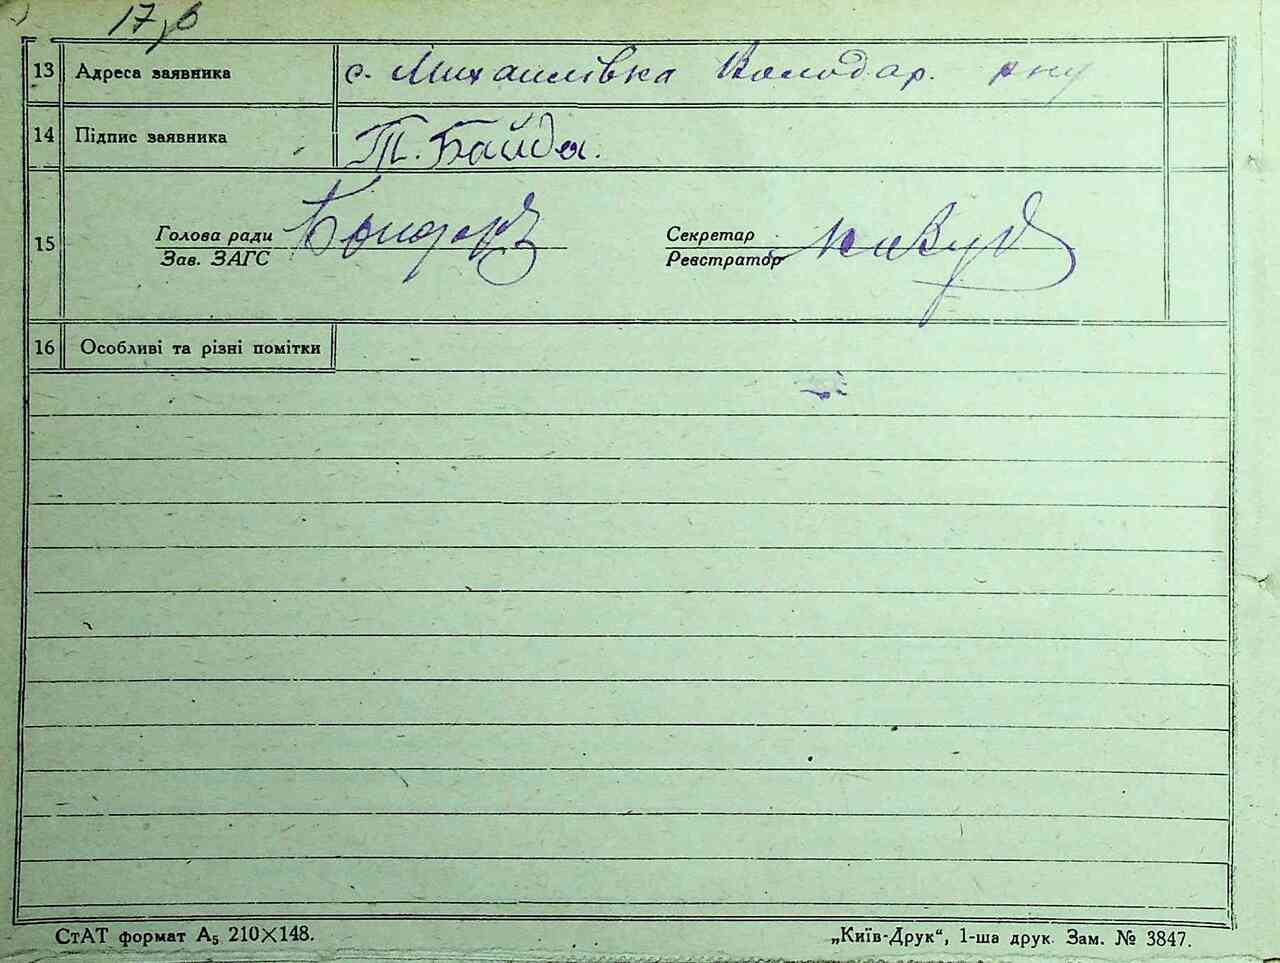 17,б
13 Адреса заявника с. Михаилівка Володар. рну
14 Підпис заявника Т. Байда.
15 Голова ради Бондар Секретар
Зав. ЗАГС Реєстратор
16 Особливі та різні помітки
СтАТ формат А5 210×148. „Київ-Друк“, 1-ша друк. Зам. № 3847.